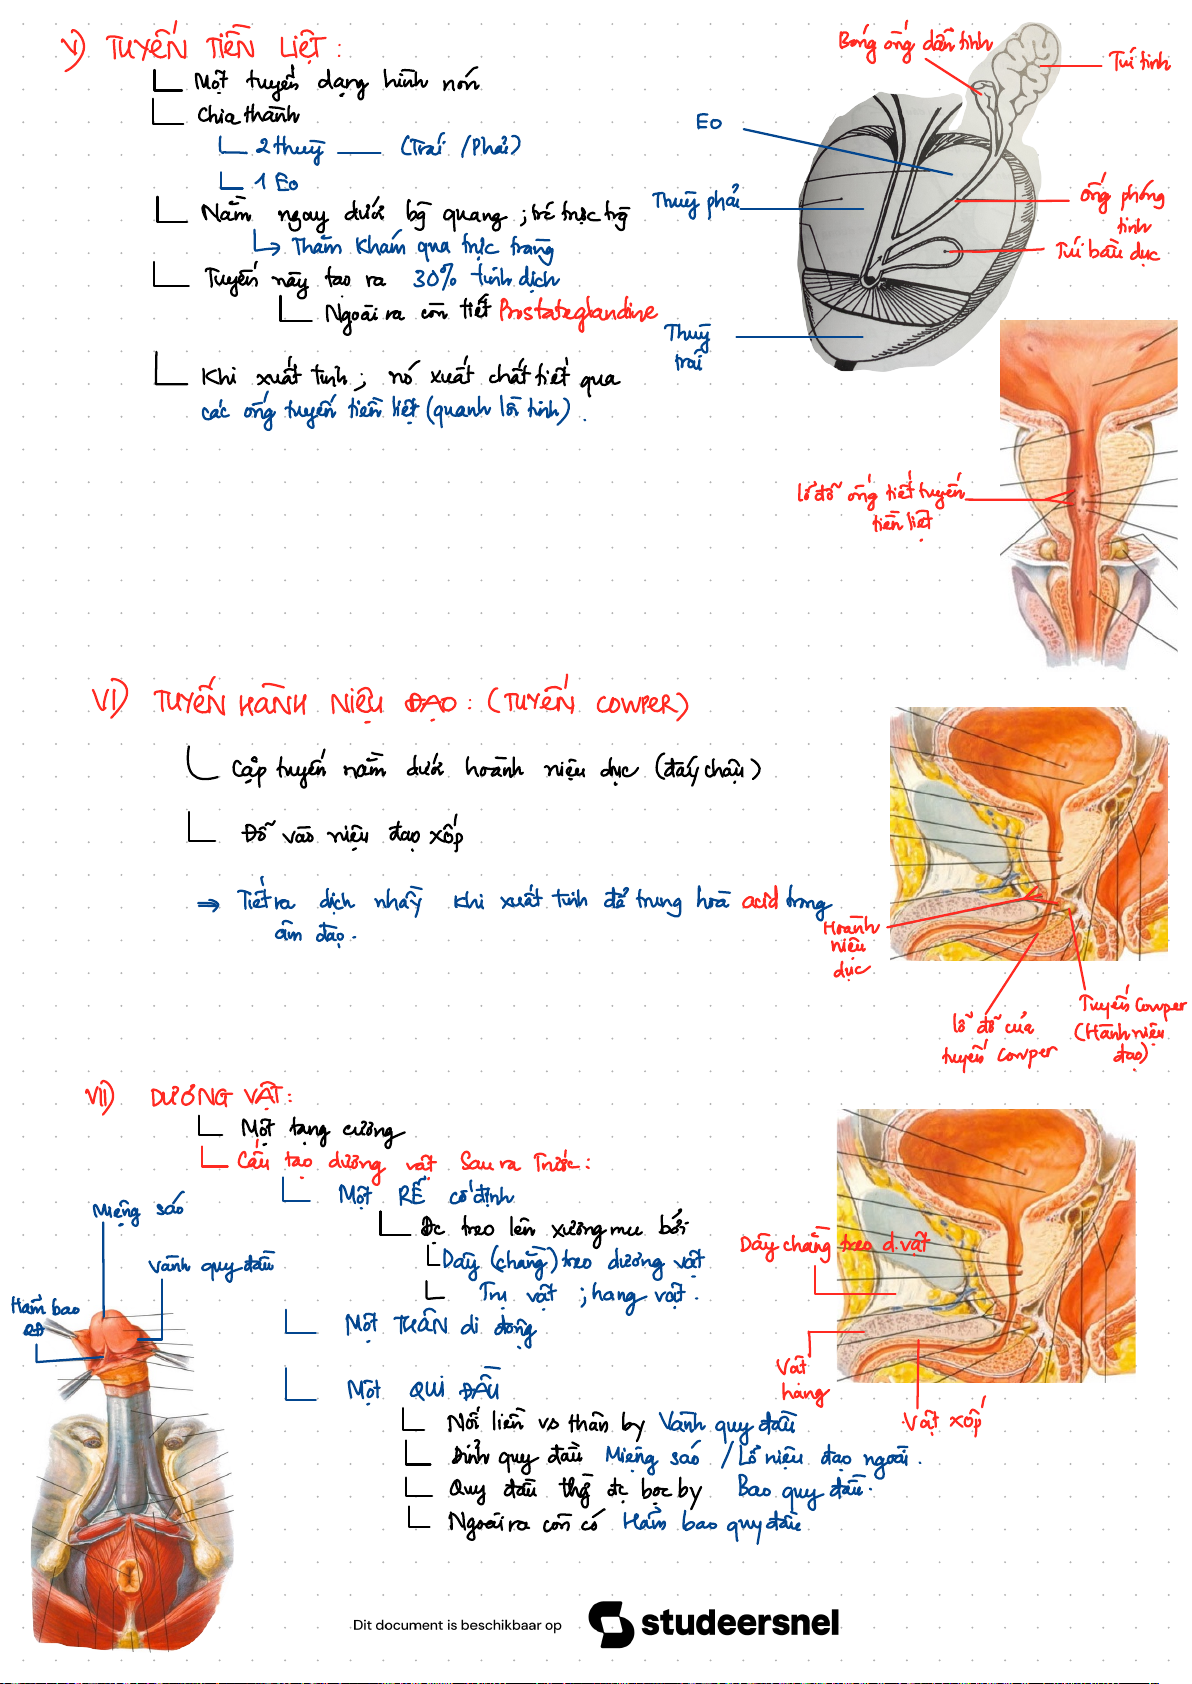 V) TUYẾN TIỀN LIỆT:
Một tuyến dạng hình nón
Chia thành
2 thuỳ (Trái / Phải)
1 Eo
Nằm ngay dưới bg quang; trc trực trg
Thăm khám qua trực tràng
Tuyến này tạo ra 30% tinh dịch
Ngoài ra còn tiết Prostateglandine
Khi xuất tinh; nó xuất chất tiết qua
các ống tuyến tiền liệt (quanh lồi tinh).
Bóng ống dẫn tinh
Túi tinh
Eo
Thuỳ phải
ống phóng
tinh
Túi bầu dục
Thuỳ
trái
lỗ đổ ống tiết tuyến
tiền liệt
VI) TUYẾN HÀNH NIỆU ĐẠO: (TUYẾN COWPER)
Cặp tuyến nằm dưới hoành niệu dục (đáy chậu)
Đổ vào niệu đạo xốp
⇒ Tiết ra dịch nhầy khi xuất tinh để trung hoà acid trong
âm đạo.
Hoành
niệu
dục
lỗ đổ của
tuyến cowper
Tuyến Cowper
(Hành niệu
đạo)
VII) DƯƠNG VẬT:
Một tạng cương
Cấu tạo dương vật Sau ra Trước:
Một RỄ cố định
Đc treo lên xương mu bởi
Dây (chằng) treo dương vật
Trụ vật; hang vật.
Một THÂN di động
Một QUI ĐẦU
Nối liền vs thân by Vành quy đầu
Đỉnh quy đầu Miệng sáo / Lỗ niệu đạo ngoài.
Quy đầu thg đc bọc by Bao quy đầu.
Ngoài ra còn có Hãm bao quy đầu
Miệng sáo
Vành quy đầu
Hãm bao
QĐ
Dây chằng treo d.vật
Vật
hang
Vật xốp
Dit document is beschikbaar op studeersnel